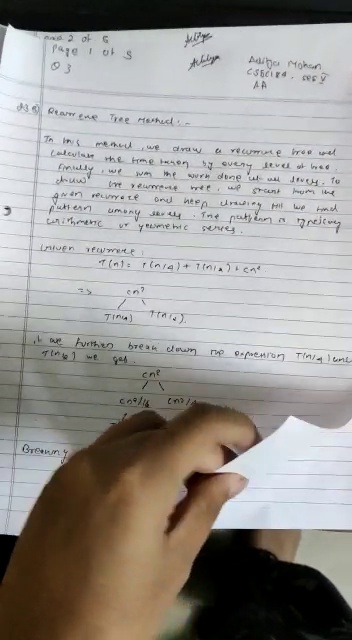 2 of 5
Page 1 of 5
Q 3
Aditya Mohan
AA
Recurrence Tree Method:-
In this method, we draw a recurrence tree and
calculate the time taken by every level of tree.
Finally, we sum the work done at all levels. To
draw the recurrence tree, we start from the
given recurrence and keep drawing till we find
pattern among levels. The pattern is typically
arithmetic or geometric series.
Given recurrence:
T(n) = T(n/4) + T(n/2) + cn²
=> cn²
T(n/4) T(n/2)
we further break down the expression T(n/4) and
T(n/2) we get
cn²
cn²/16 cn²/4